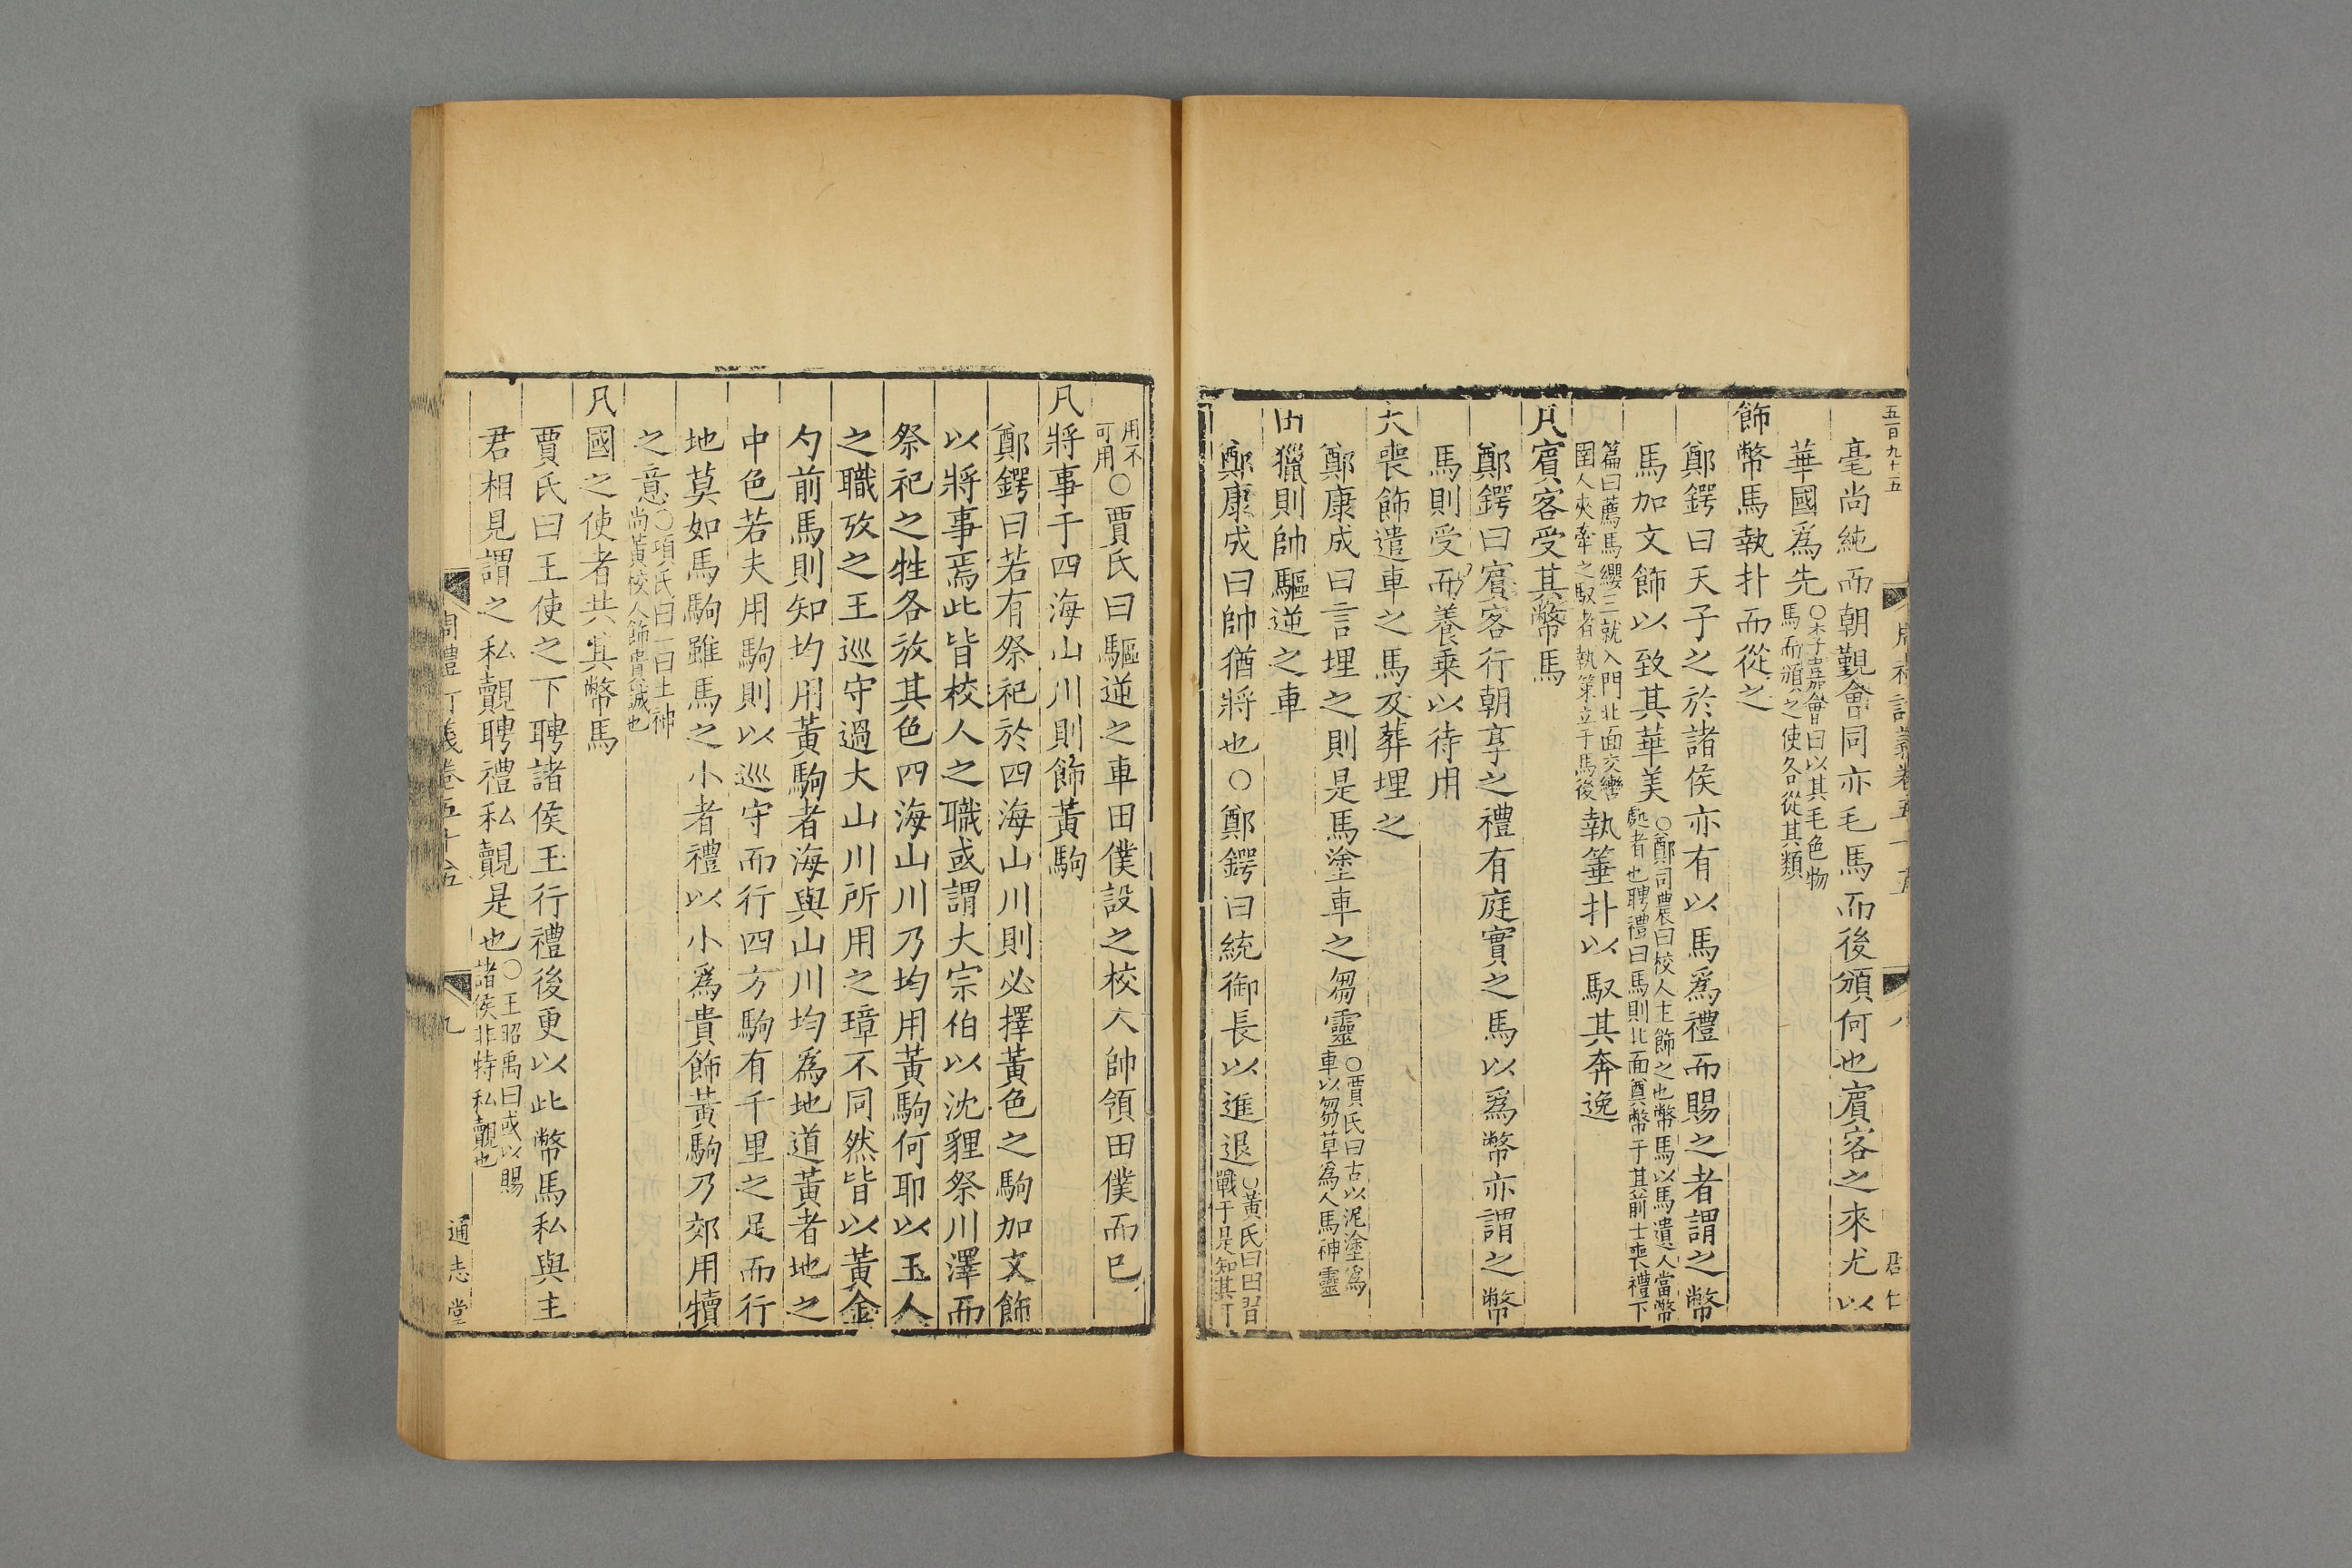 五百九十五
毫尚純而朝覲會同亦毛馬而後頒何也賓客之來尤以
華國爲先〇李嘉會曰以其毛色物馬而頒之使各從其類
飾幣馬執扑而從之
鄭鍔曰天子之於諸侯亦有以馬爲禮而賜之者謂之幣
馬加文飾以致其華美〇鄭司農曰校人主飾之也幣馬以馬遺人當幣處者也聘禮曰馬則北面奠幣于其前士喪禮下
篇曰薦馬纓三就入門北面交轡圉人夾牽之馭者執策立于馬後執箠扑以馭其奔逸
凡賓客受其幣馬
鄭鍔曰賓客行朝享之禮有庭實之馬以爲幣亦謂之幣
馬則受而養乗以待用
大喪飾遣車之馬及葬埋之
鄭康成曰言埋之則是馬塗車之芻靈〇賈氏曰古以泥塗爲車以芻草爲人馬神靈
田獵則帥驅逆之車
鄭康成曰帥猶將也〇鄭鍔曰統御長以進退〇黃氏曰田習戰于是知其可
用不可用〇賈氏曰驅逆之車田僕設之校人帥領田僕而巳
凡將事于四海山川則飾黃駒
鄭鍔曰若有祭祀於四海山川則必擇黃色之駒加文飾
以將事焉此皆校人之職或謂大宗伯以沈貍祭川澤而
祭祀之牲各放其色四海山川乃均用黃駒何耶以玉人
之職攷之王巡守過大山川所用之璋不同然皆以黃金
勺前馬則知均用黃駒者海與山川均爲地道黃者地之
中色若夫用駒則以巡守而行四方駒有千里之足而行
地莫如馬駒雖馬之小者禮以小爲貴飾黃駒乃郊用犢
之意〇項氏曰一曰土神尚黃校人飾貴誠也
凡國之使者共其幣馬
賈氏曰王使之下聘諸侯王行禮後更以此幣馬私與主
君相見謂之私覿聘禮私覿是也〇王昭禹曰或以賜諸侯非特私覿也
周禮訂義卷五十五
九
通志堂